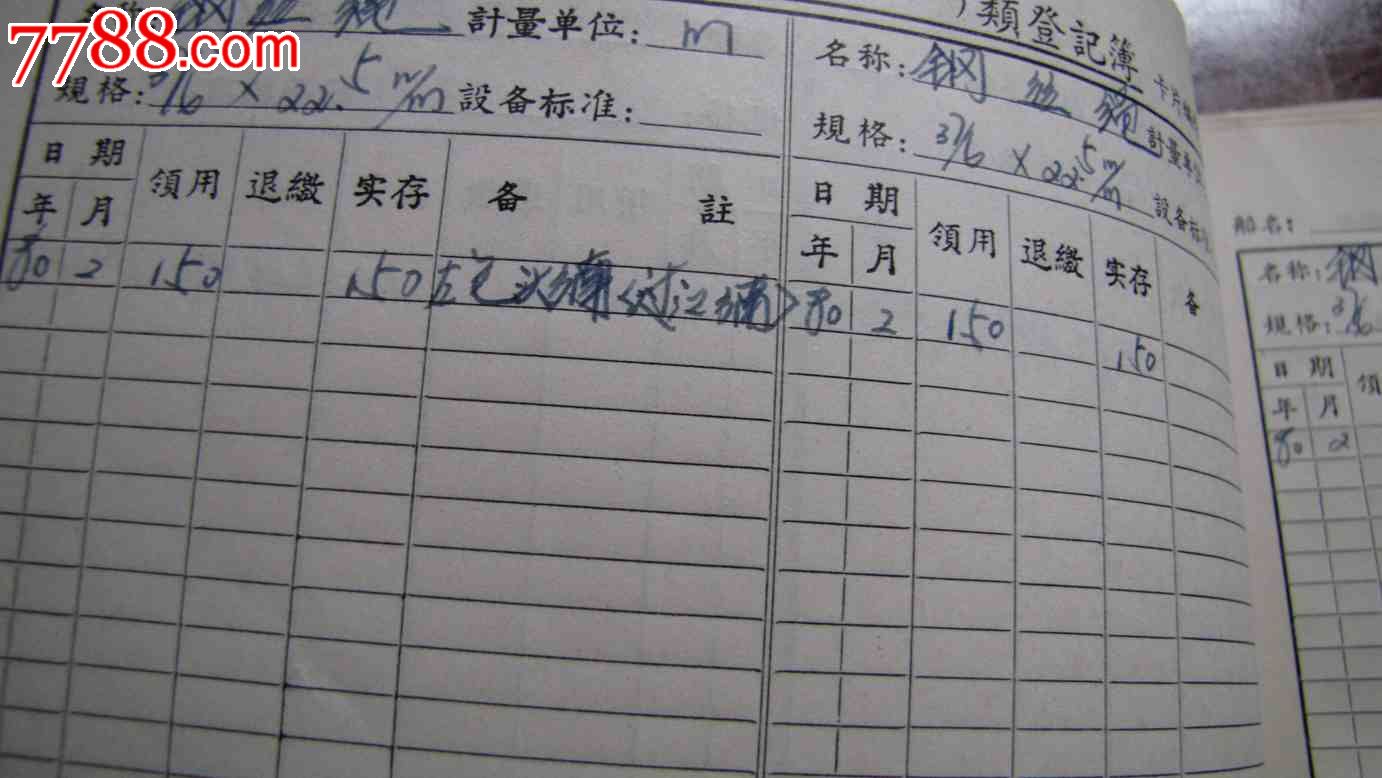 7788.com
名称: 鋼丝繩 計量单位: m
規格: 3/6 × 22.5 m/m 設备标准:
日期 領用 退繳 实存 备註
年 月
80 2 150 150
类登記簿 卡片
名称: 鋼丝繩 計量单
規格: 3/6 × 22.5 m/m 設备标
日期 領用 退繳 实存 备
年 月
80 2 150 150
船名:
名称: 鋼
規格: 3/6
日期 領
年 月
80 2